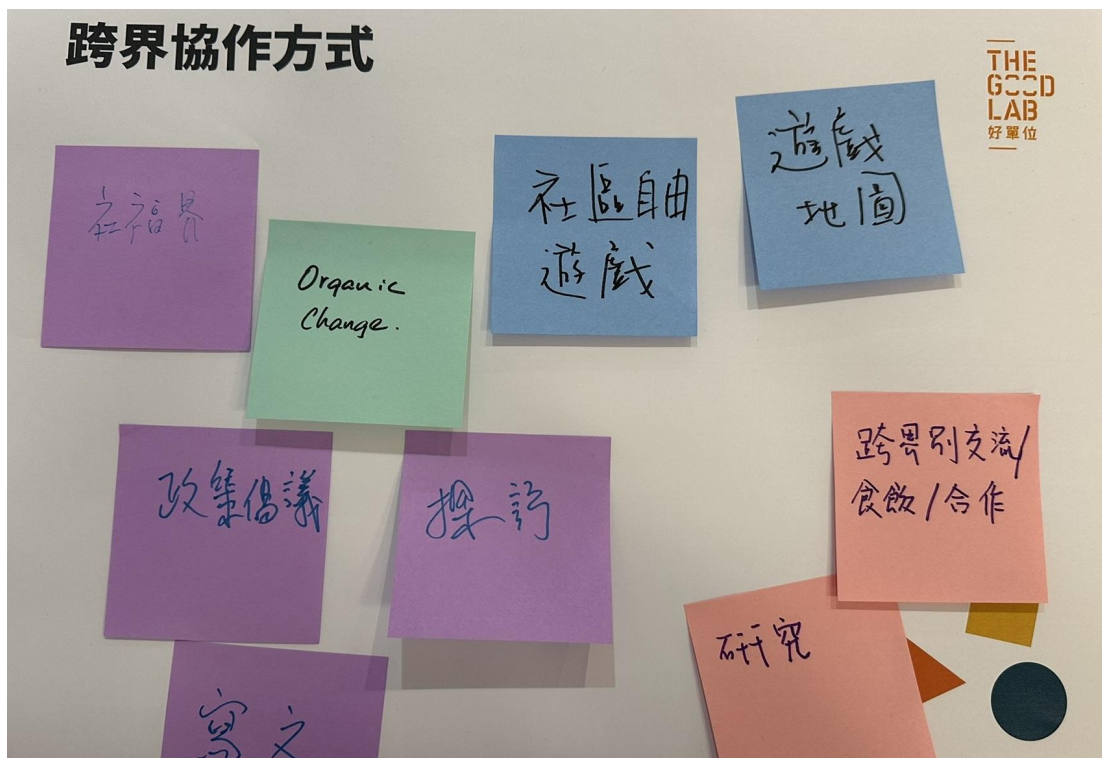 跨界協作方式
THE
GOOD
LAB
好單位
社福界
Organic
Change.
社區自由
遊戲
遊戲
地圖
政策倡議
探訪
跨界別交流/
食飯/合作
研究
寫文